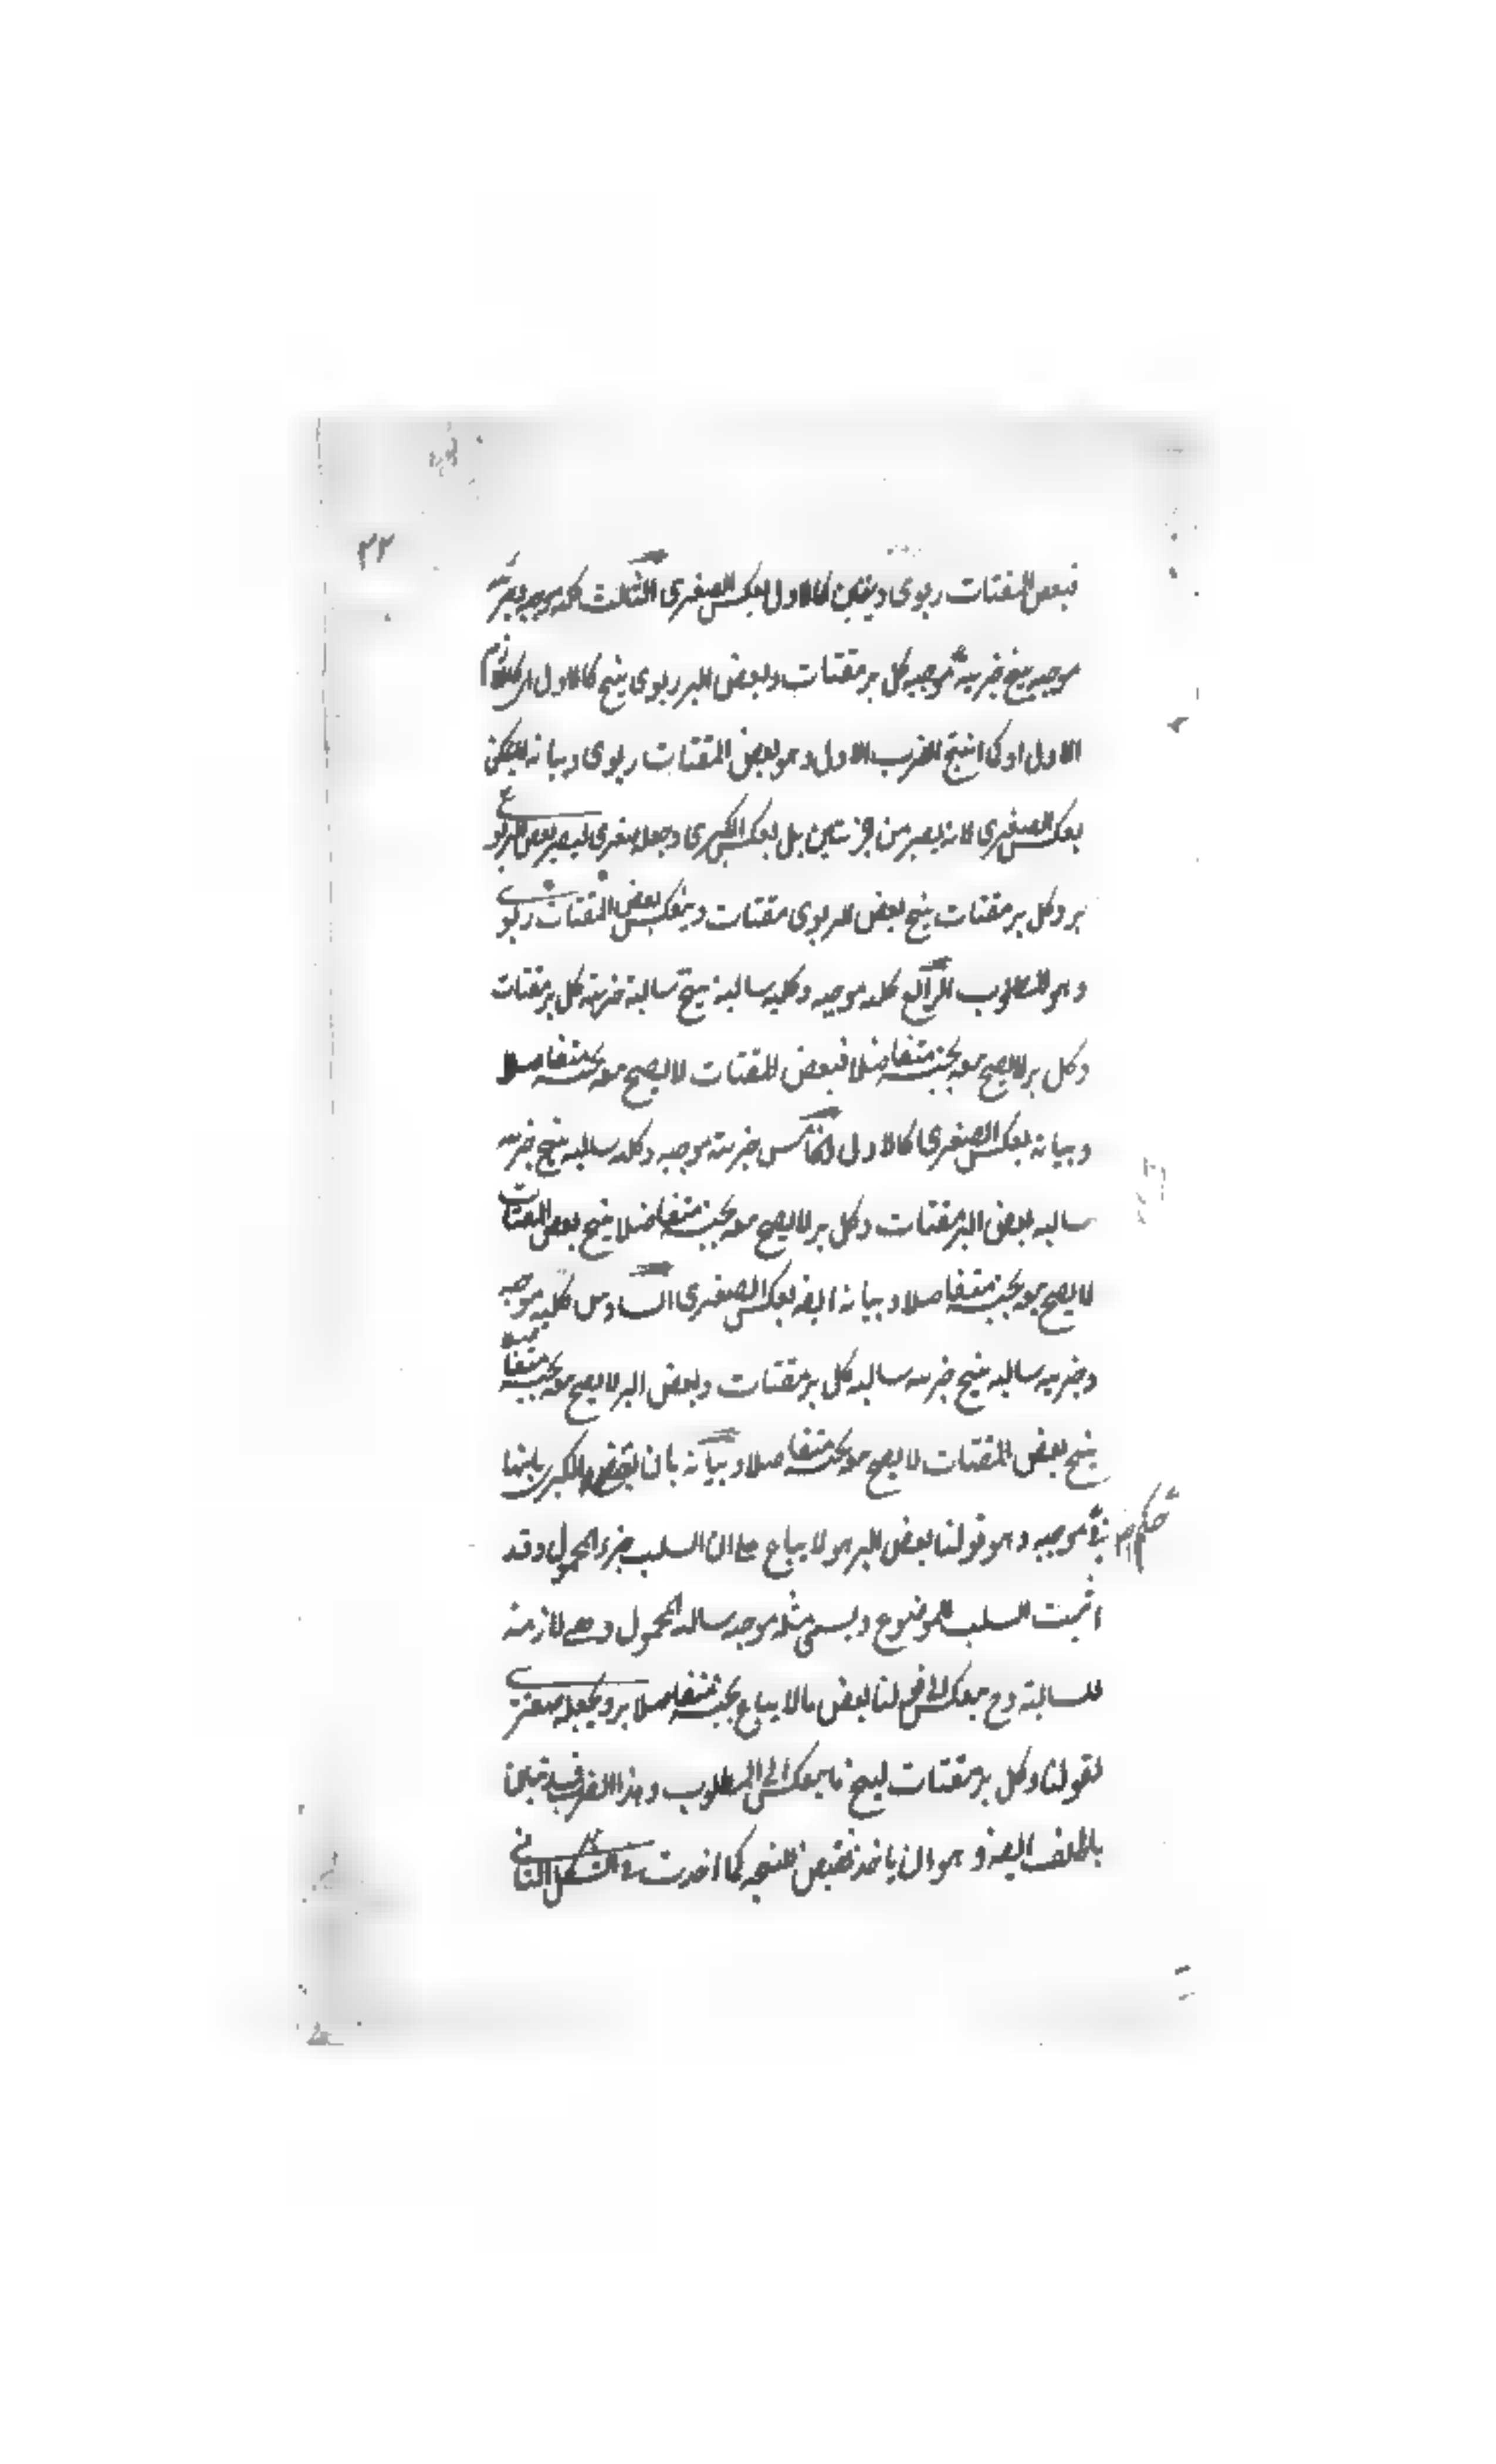 ٢٢
فبعض المقتات ربوى ويتبين كالاول بعكس الصغرى الثالث كلية موجبة وجزئية
موجبة ينتج جزئية موجبة كل بر مقتات وبعض البر ربوى ينتج كالاول
الاول او كى انتج الضرب الاول وهو بعض المقتات ربوى وبيانه لا يمكن
بعكس الصغرى لانه يصير من جزئيتين بل بعكس الكبرى وجعلها صغرى ليصير بعض الربوى
بر وكل بر مقتات ينتج بعض الربوى مقتات وينعكس بعض المقتات ربوى
وهو المطلوب الرابع كلية موجبة وكلية سالبة ينتج سالبة جزئية كل بر مقتات
وكل بر لا يصح بيعه بجنسه متفاضلا فبعض المقتات لا يصح بيعه بجنسه متفاضلا
وبيانه بعكس الصغرى كالاول الخامس جزئية موجبة وكلية سالبة ينتج جزئية
سالبة بعض البر مقتات وكل بر لا يصح بيعه بجنسه متفاضلا ينتج بعض المقتات
لا يصح بيعه بجنسه متفاضلا وبيانه ايضه بعكس الصغرى السادس كلية موجبة
وجزئية سالبة ينتج جزئية سالبة كل بر مقتات وبعض البر لا يصح بيعه بجنسه متفاضلا
ينتج بعض المقتات لا يصح بيعه بجنسه متفاضلا وبيانه بان الكبرى بانها
موجبة وهو قولنا بعض البر هو لا يباع على ان السلب جزء المحمول وقد
اثبت السلب للموضوع ويسمى مثله موجبة سالبة المحمول وهى لازمة
للسالبة وح ينعكس الى قولنا بعض ما لا يباع بجنسه متفاضلا بر ويجعله صغرى
لقولنا وكل بر مقتات لينتج ما ينعكس الى المطلوب وهذا الضرب يتبين
بالخلف ايضه وهو ان ياخذ نقيض النتيجة كما اخذت فى الشكل الثانى